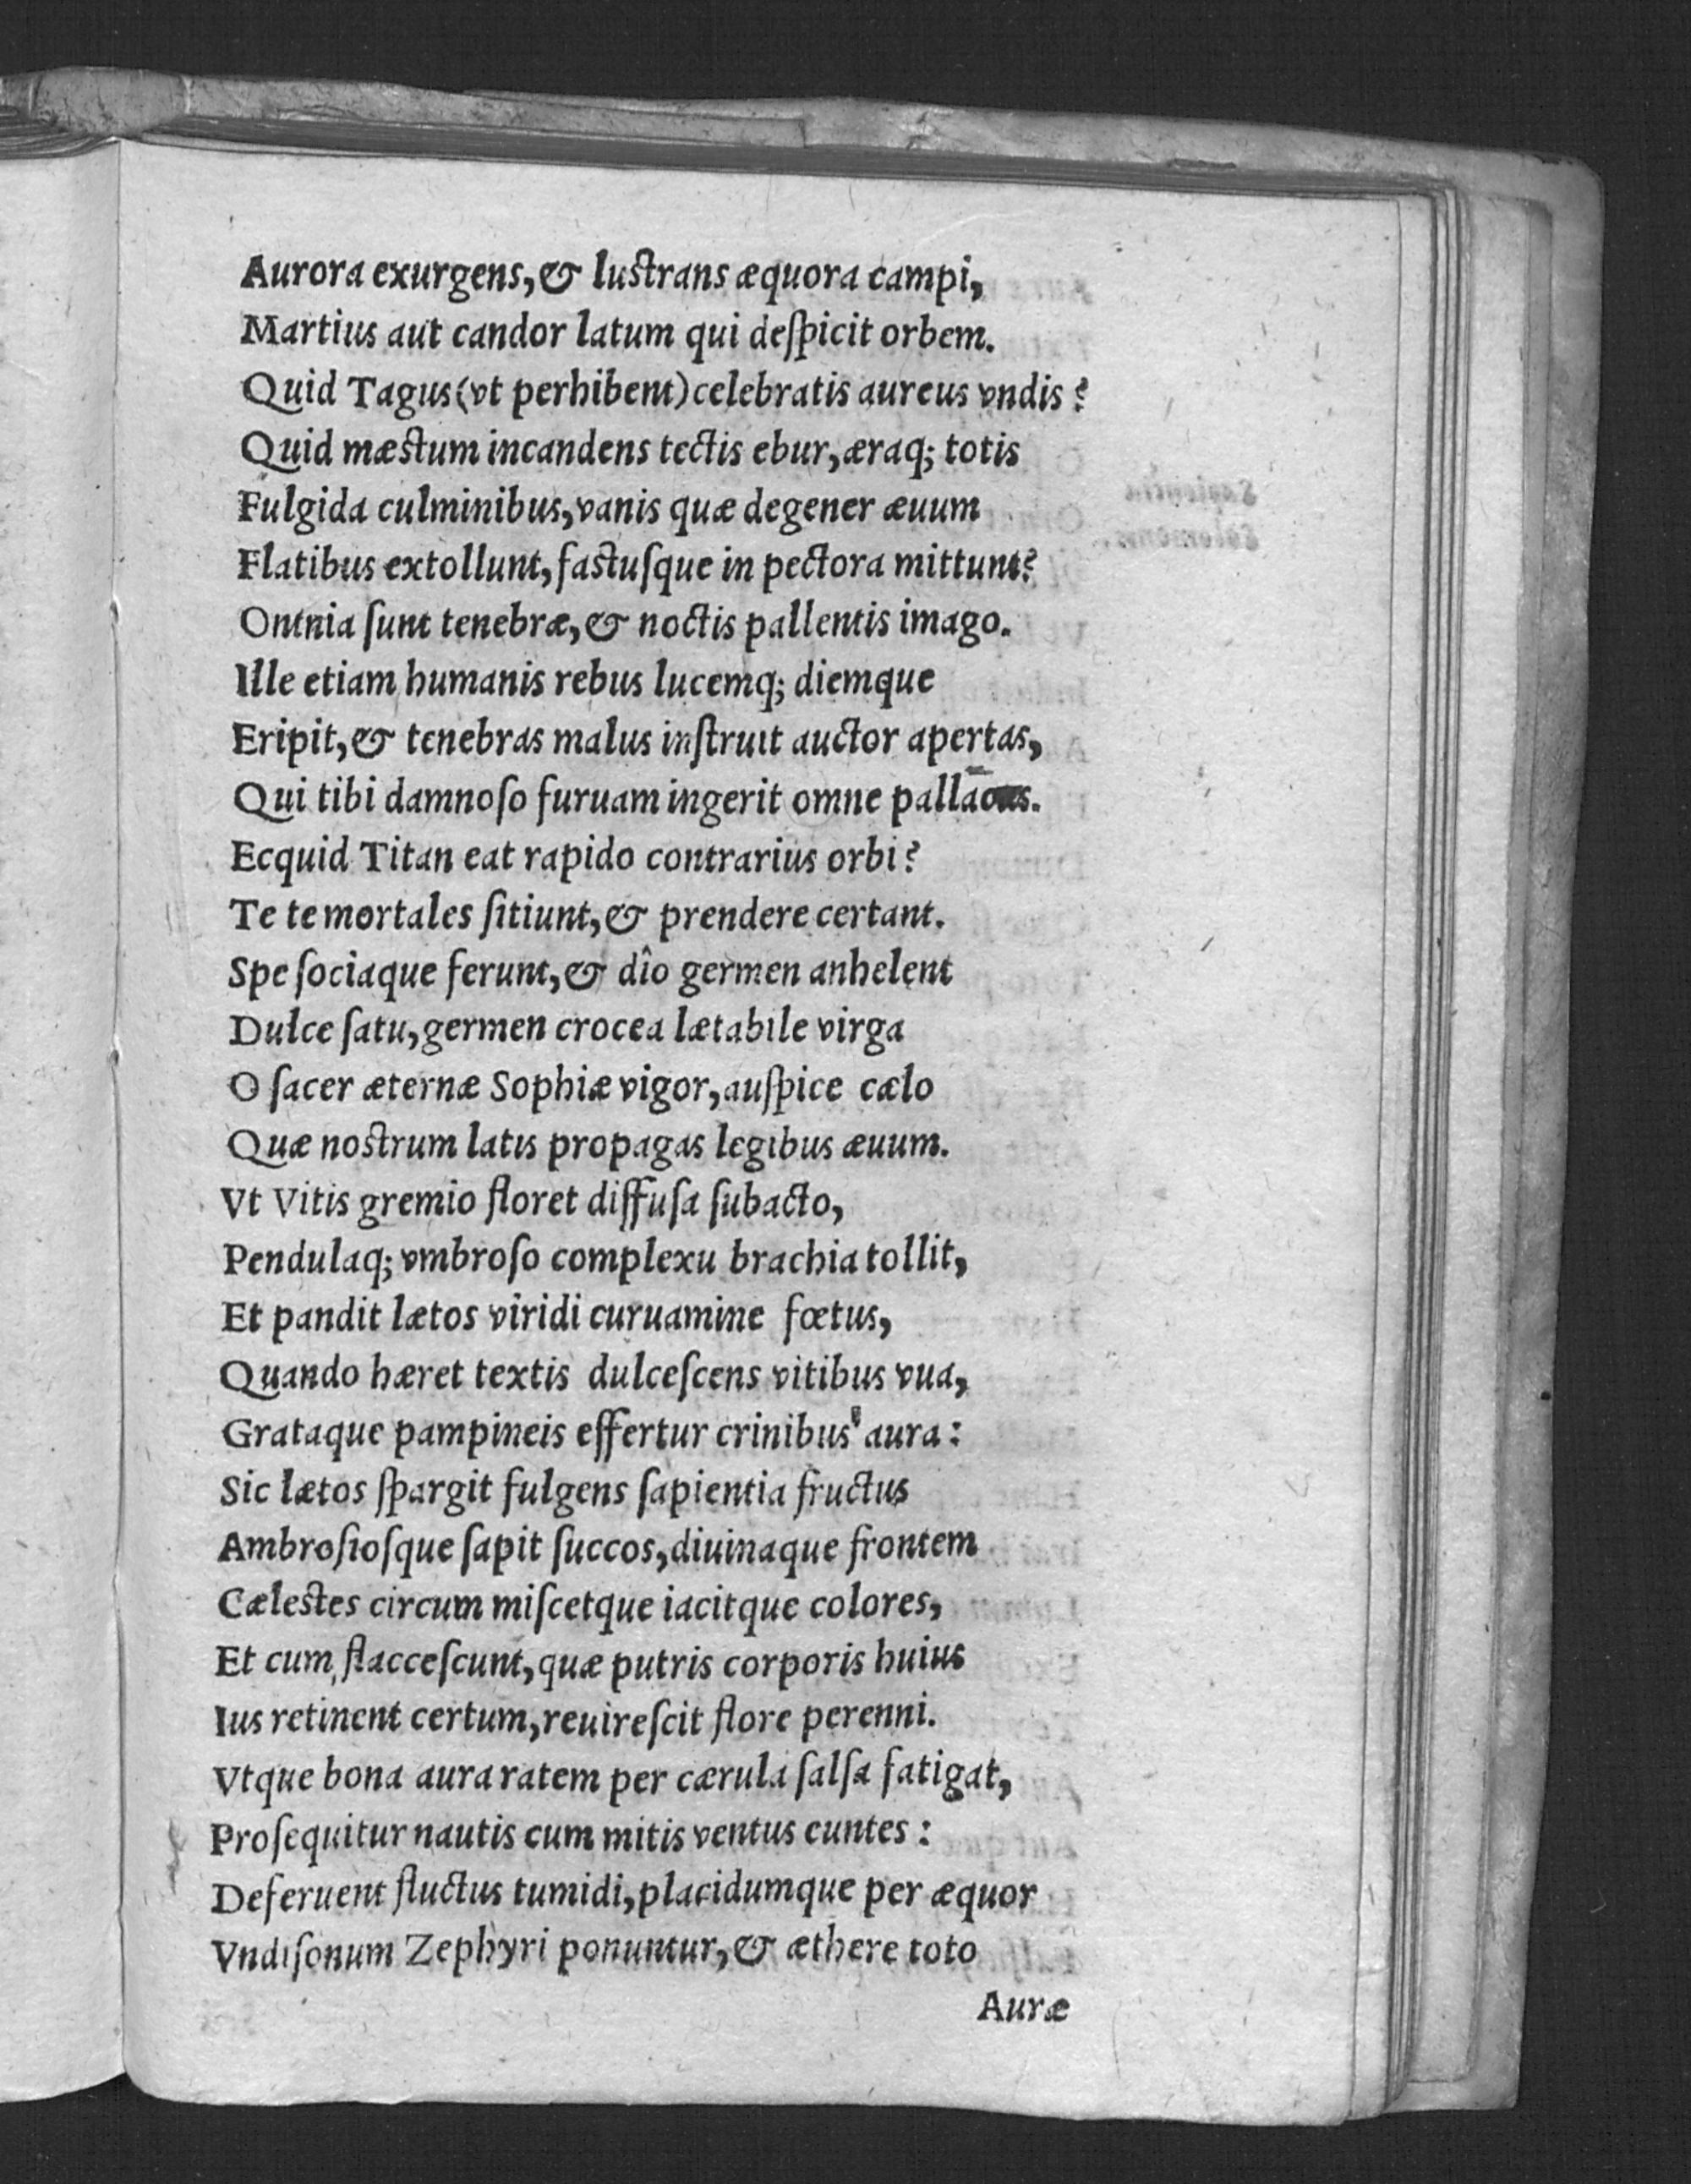 Aurora exurgens, & luſtrans æquora campi,
Martius aut candor latum qui deſpicit orbem.
Quid Tagus (vt perhibent) celebratis aureus vndis?
Quid mæſtum incandens tectis ebur, æraq; totis
Fulgida culminibus, vanis quæ degener æuum
Flatibus extollunt, faſtuſque in pectora mittunt?
Omnia ſunt tenebræ, & noctis pallentis imago.
Ille etiam humanis rebus lucemq; diemque
Eripit, & tenebras malus inſtruit auctor apertas,
Qui tibi damnoſo furuam ingerit omne
Ecquid Titan eat rapido contrarius orbi?
Te te mortales ſitiunt, & prendere certant.
Spe ſociaque ferunt, & dîo germen anhelent
Dulce ſatu, germen crocea lætabile virga
O ſacer æternæ Sophiæ vigor, auſpice cælo
Quæ noſtrum latis propagas legibus æuum.
Vt Vitis gremio floret diffuſa ſubacto,
Pendulaq; vmbroſo complexu brachia tollit,
Et pandit lætos viridi curuamine fœtus,
Quando hæret textis dulceſcens vitibus vua,
Grataque pampineis effertur crinibus aura:
Sic lætos ſpargit fulgens ſapientia fructus
Ambroſioſque ſapit ſuccos, diuinaque frontem
Cæleſtes circum miſcetque iacitque colores,
Et cum flacceſcunt, quæ putris corporis huius
Ius retinent certum, reuireſcit flore perenni.
Vtque bona aura ratem per cærula ſalſa fatigat,
Proſequitur nautis cum mitis ventus euntes:
Deferuent fluctus tumidi, placidumque per æquor
Vndiſonum Zephyri ponuntur, & æthere toto
Auræ